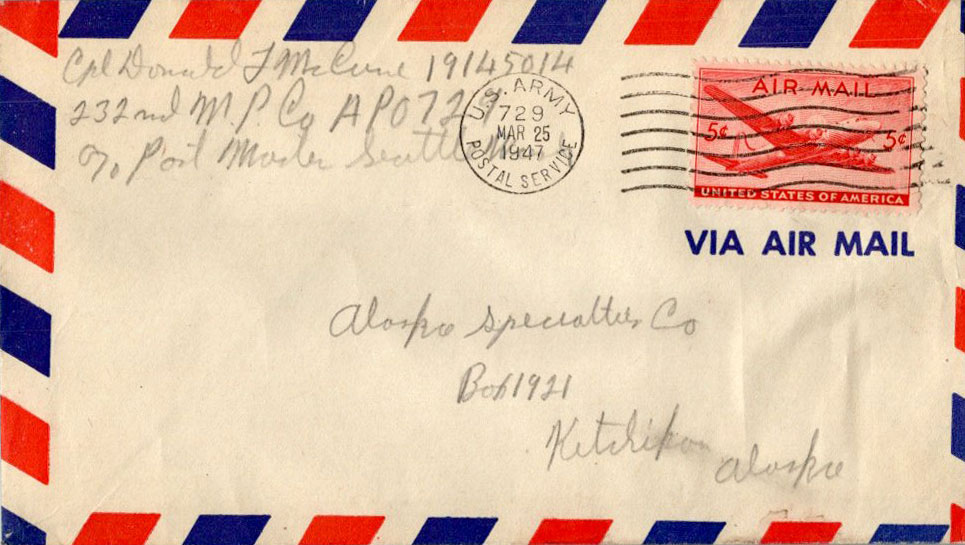 Cpl Donald F McCune 19145014
232nd M.P. Co APO 729
c/o Post Master Seattle
U.S. ARMY
729
MAR 25
1947
POSTAL SERVICE
AIR MAIL
5¢ 5¢
UNITED STATES OF AMERICA
VIA AIR MAIL
Alaska Specialties Co
Box 1921
Ketchikan Alaska